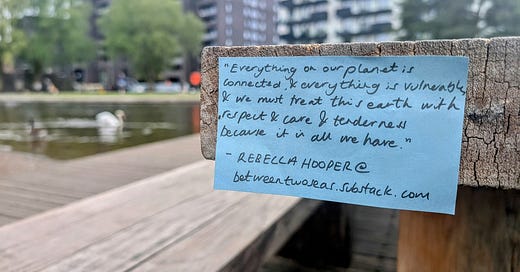 "Everything on our planet is
connected, & everything is vulnerable,
& we must treat this earth with
respect & care & tenderness
because it is all we have."
- REBELLA HOOPER @
betweentwoseas.substack.com